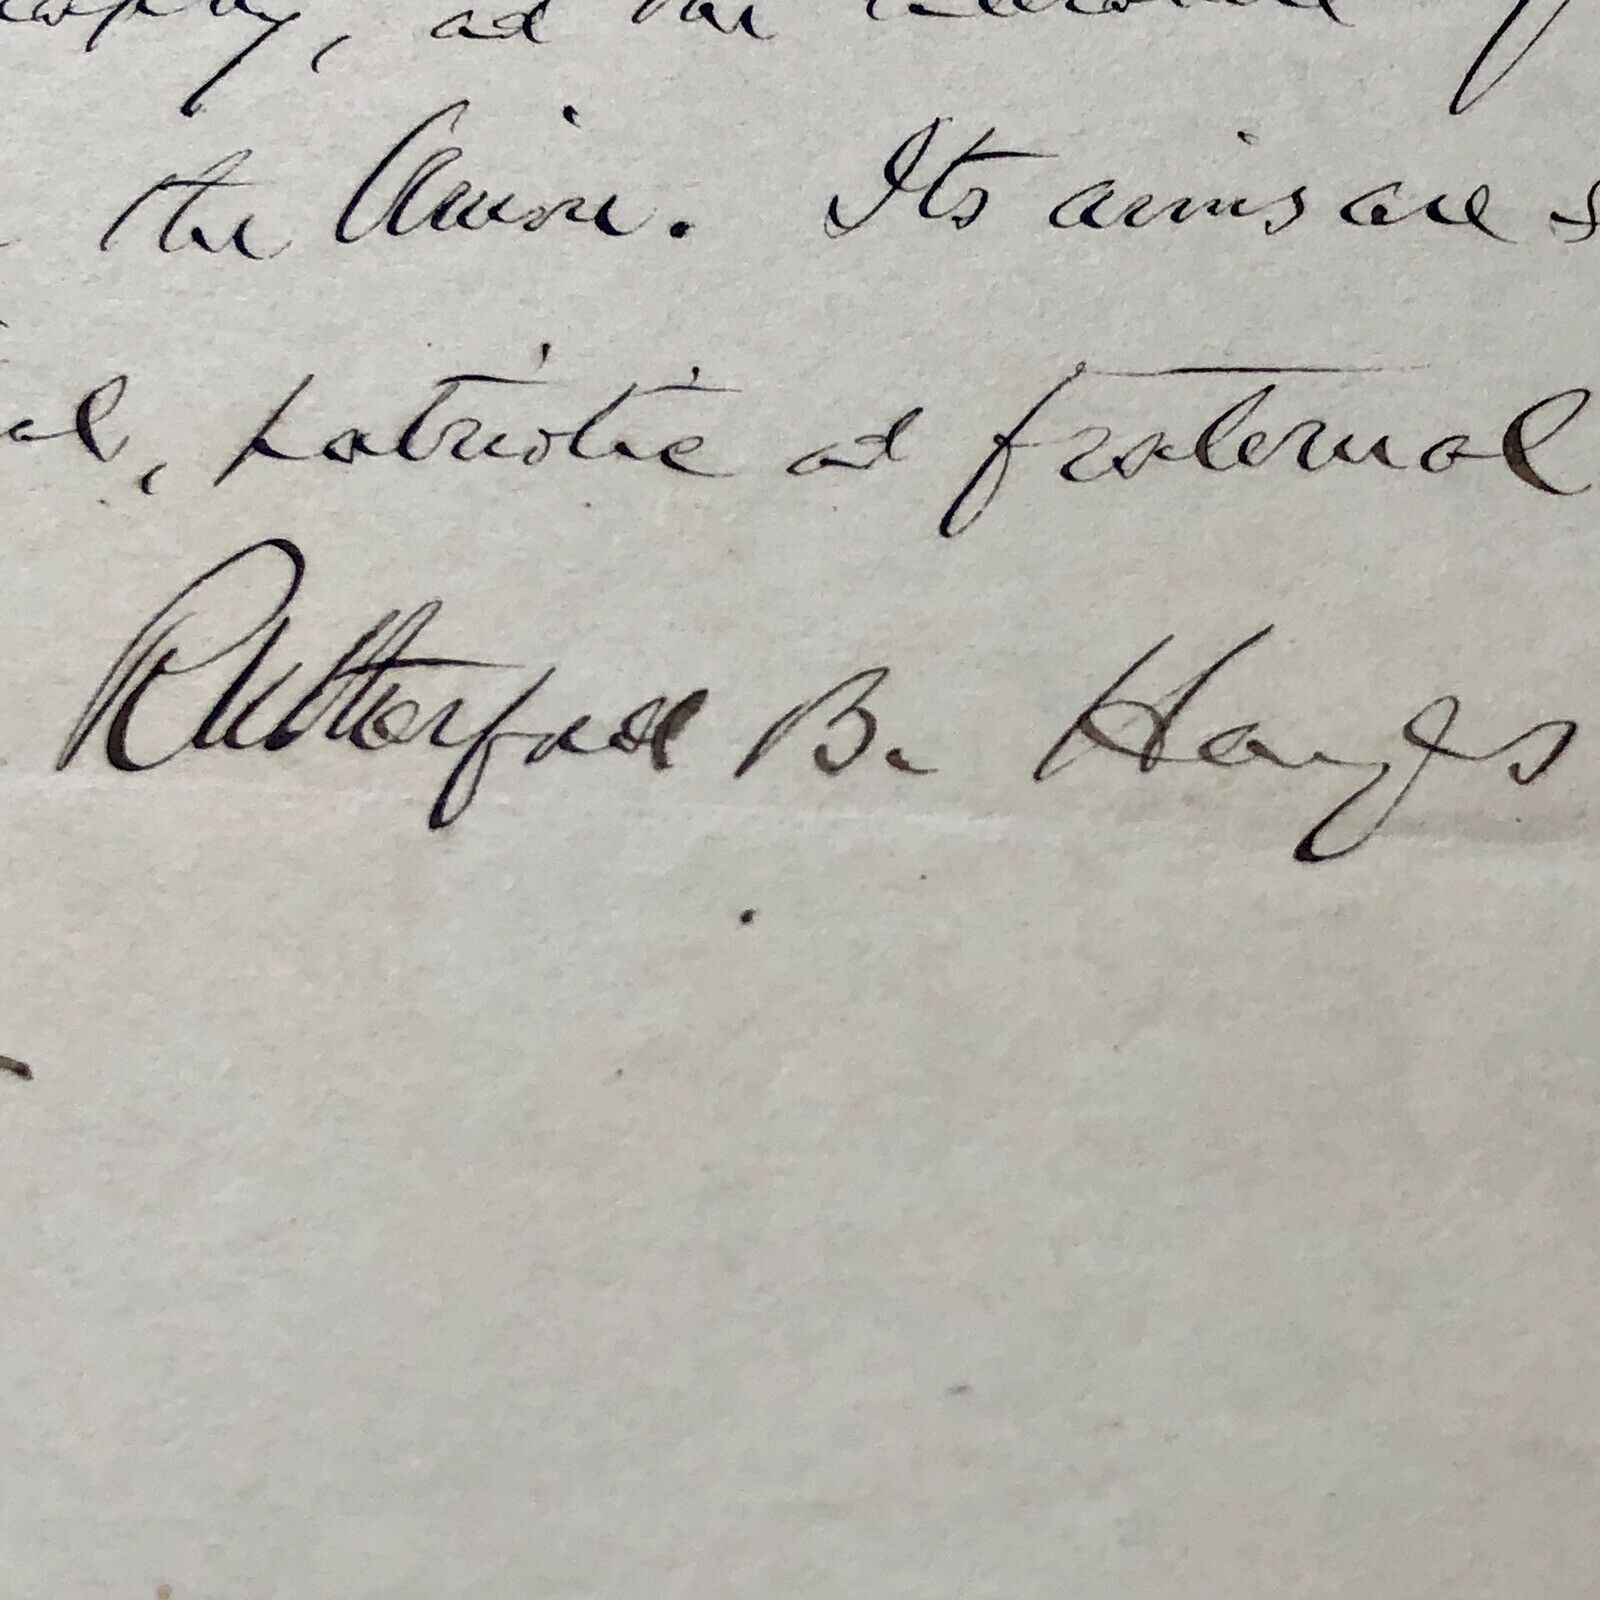 , and the
the Union. Its aims are
al, patriotic and fraternal
Rutherford B. Hayes